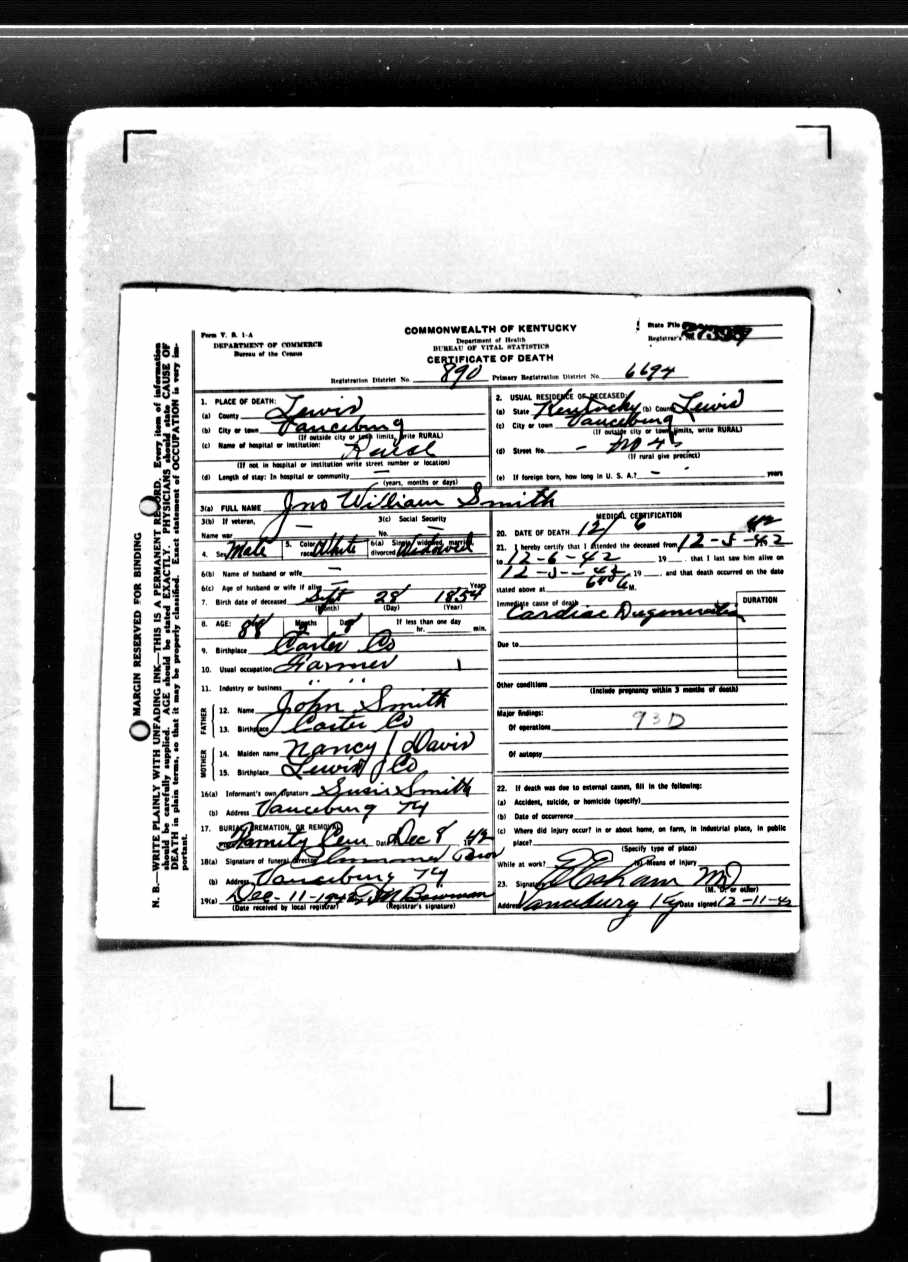 MARGIN RESERVED FOR BINDING
N. B.—WRITE PLAINLY WITH UNFADING INK—THIS IS A PERMANENT RECORD. Every item of information
should be carefully supplied. AGE should be stated EXACTLY. PHYSICIANS should state CAUSE OF
DEATH in plain terms, so that it may be properly classified. Exact statement of OCCUPATION is very im-
portant.
Form V. S. 1-A
DEPARTMENT OF COMMERCE
Bureau of the Census
COMMONWEALTH OF KENTUCKY
Department of Health
BUREAU OF VITAL STATISTICS
CERTIFICATE OF DEATH
State File
Registrar's No.
Registration District No. 890 Primary Registration District No. 6694
1. PLACE OF DEATH:
(a) County Lewis
(b) City or town Vanceburg
(If outside city or town limits, write RURAL)
(c) Name of hospital or institution: Rural
(If not in hospital or institution write street number or location)
(d) Length of stay: In hospital or community —
(years, months or days)
2. USUAL RESIDENCE OF DECEASED:
(a) State Kentucky (b) County Lewis
(c) City or town Vanceburg
(If outside city or town limits, write RURAL)
(d) Street No.
(If rural give precinct)
(e) If foreign born, how long in U. S. A.? — years
3(a) FULL NAME Jno William Smith
3(b) If veteran,
Name war —
3(c) Social Security
No. —
4. Sex Male 5. Color or race White 6(a) Single, widowed, married, divorced Widowed
6(b) Name of husband or wife —
6(c) Age of husband or wife if alive — Years
7. Birth date of deceased Sept 28 1854
(Month) (Day) (Year)
8. AGE: 88 Months 2 Days 8 If less than one day
hr. min.
9. Birthplace Carter Co
10. Usual occupation Farmer
11. Industry or business " "
FATHER
12. Name John Smith
13. Birthplace Carter Co
MOTHER
14. Maiden name Nancy Davis
15. Birthplace Lewis Co
16(a) Informant's own signature Susie Smith
(b) Address Vanceburg Ky
17. BURIAL, CREMATION, OR REMOVAL
Cem Date Dec 8 42
18(a) Signature of funeral director
(b) Address Vanceburg Ky
19(a) Dec-11-1942 M Bowman
(Date received by local registrar) (Registrar's signature)
MEDICAL CERTIFICATION
20. DATE OF DEATH 12/6 42
21. I hereby certify that I attended the deceased from 12-5-42
to 12-6-42 19 , that I last saw him alive on
12-5-42 19 , and that death occurred on the date
stated above at M.
Immediate cause of death DURATION
Cardiac Degeneration
Due to
Other conditions
(Include pregnancy within 3 months of death)
Major findings:
Of operations 93D
Of autopsy
22. If death was due to external causes, fill in the following:
(a) Accident, suicide, or homicide (specify)
(b) Date of occurrence
(c) Where did injury occur? in or about home, on farm, in industrial place, in public
place?
(Specify type of place)
While at work? (e) Means of injury
23. Signature Esham MD
(M. D. or other)
Address Vanceburg Ky Date signed 12-11-42